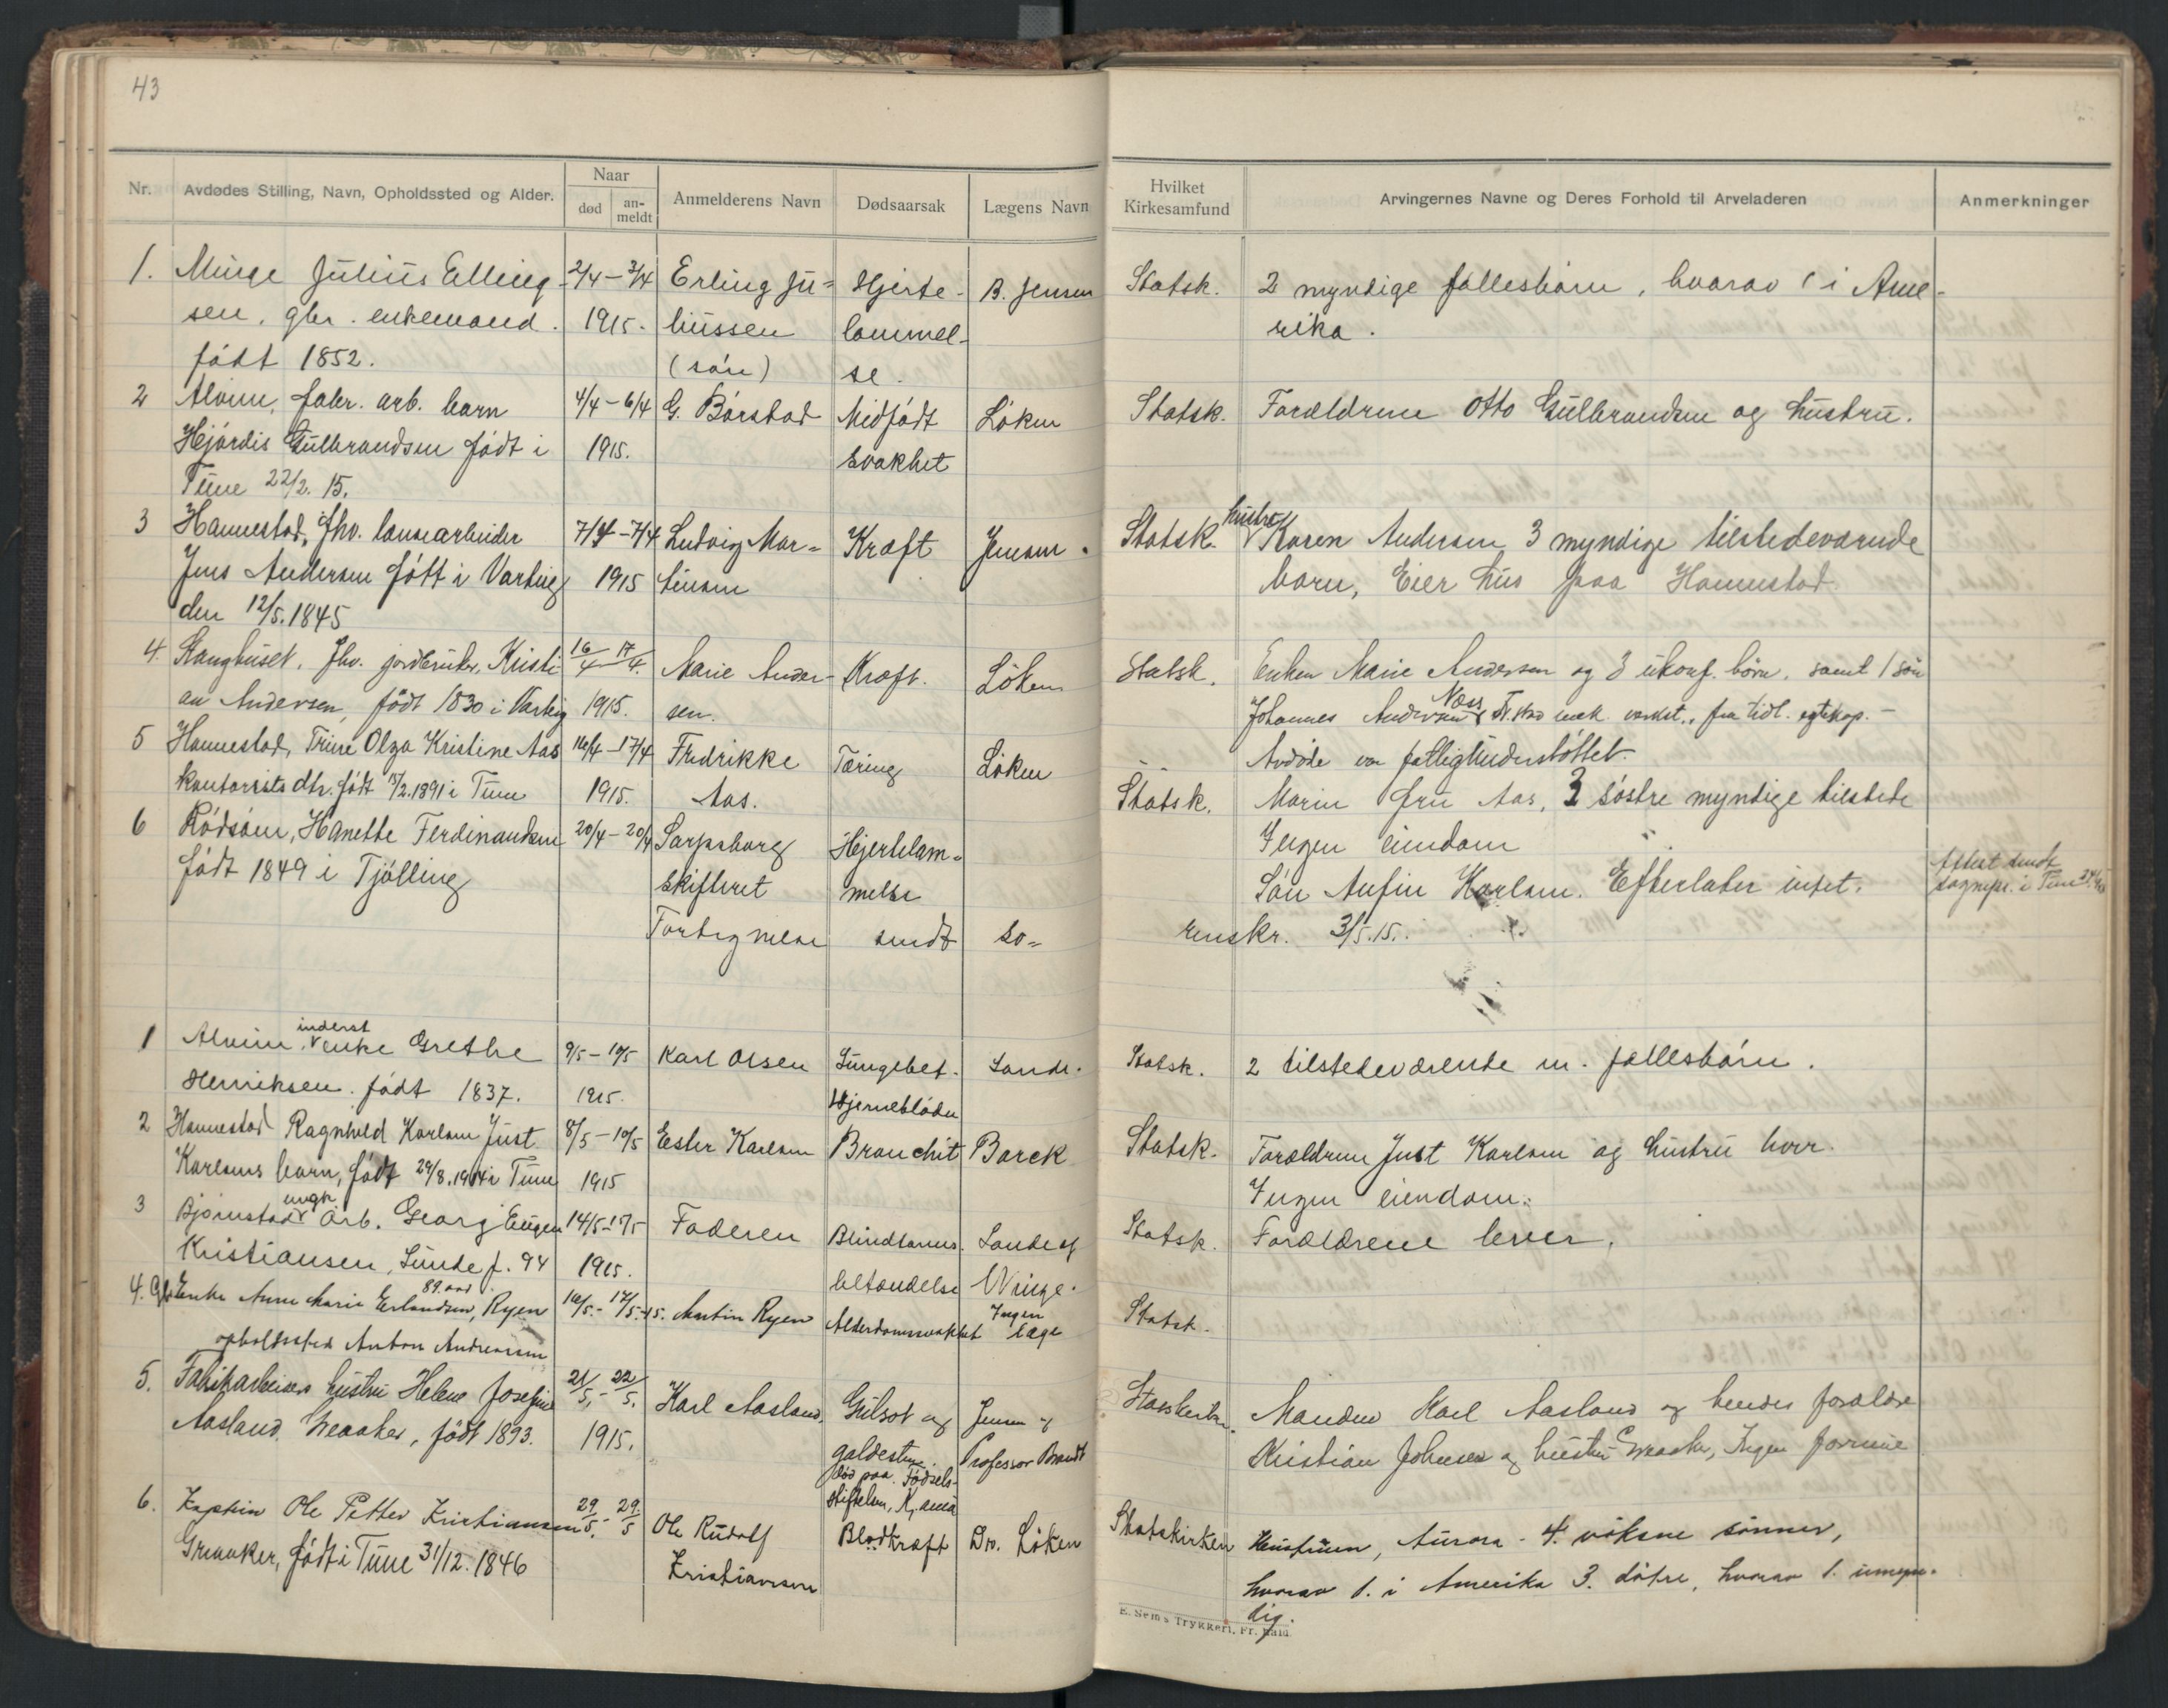 43
Nr. Avdødes Stilling, Navn, Opholdssted og Alder. Naar død an-meldt Anmelderens Navn Dødsaarsak Lægens Navn Hvilket Kirkesamfund Arvingernes Navne og Deres Forhold til Arveladeren Anmerkninger
1. Minge Julius Elling- 2/4 – 3/4 Erling Ju= Hjerte- B. Jensen Statsk. 2 myndige fællesbørn, hvorav 1 i Ame-
sen. gbr. enkemand. 1915. liussen lammel- rika.
født 1852. (søn) se.
2 Alvim, fabr. arb. barn 4/4 – 6/4 G. Børstad Medfødt Løken Statsk. Forældrene Otto Gulbrandsen og hustru.
Hjørdis Gulbrandsen født i 1915. svakhet
Tune 22/2. 15.
3 Hannestad, fhv. lænsearbeider 7/4 – 7/4 Ludvig Mar= Kræft Jensen. Statsk. hustru Karen Andersen 3 myndige tilstedeværende
Jens Andersen født i Varteig 1915 tinsen barn, Eier hus paa Hannestad
den 12/5. 1845
4. Stanghuset. Fhv. jordbruker, Kristi- 16/4 – 17/4. Marie Ander- Kræft. Løken Statsk. Enken Marie Andersen og 3 ukonf. børn, samt 1 søn
an Andersen, født 1830 i Varteig 1915. sen. Johannes Andersen Næss Fr.stad mek. verkst., fra tidl. egtskap. –
Avdøde var fattigunderstøttet.
5 Hannestad, Trine Olga Kristine Aas 16/4 – 17/4 Fredrikke Tæring Løken Statsk. Moren fru Aas, 3 søstre myndige tilstede
kontorists dtr. født 15/2. 1891 i Tune 1915. Aas. Ingen eiendom
6 Rødsøen, Hanette Ferdinandsen 20/4 – 20/4 Sarpsborg Hjertelam= Søn Anfin Karlsen. Efterlater intet. Attest sendt
født 1849 i Tjølling skifteret melse sognepr. i Tune
Fortegnelse sendt so= renskr. 3/5. 15.
1 Alvim. inderst enke Grethe 9/5 – 10/5 Karl Olsen Lungebet. Sande. Statsk. 2 tilstedeværende m. fællesbørn.
Henriksen. født 1837. 1915. Hjerneblødn
2 Hannestad Ragnhild Karlsen Just 8/5 – 10/5 Ester Karlsen Bronchit Barck Statsk. Forældrene Just Karlsen og hustru
Karlsens barn, født 29/8. 1914 i Tune 1915 Ingen eiendom.
3 Bjørnstad ungk. Arb. Georg Eugen 14/5 – 17/5 Faderen Blindtarms- Sande og Statsk. Forældrene lever.
Kristiansen, Lunde f. 94 1915. betændelse Winge.
4. Enke Anne Marie Erlandsen, 89 aar Ryen 16/5. – 17/5. – 15. Martin Ryen Alderdomssvakhet Ingen læge Statsk.
opholdssted Anton Andreassen
5. Fabrikarbeiders hustru Helene Josefine 21/5. – 22/5. Karl Aasland. Gulsot og Jensen og Statskirken. Manden Karl Aasland og hendes forældre
Aasland. Greaaker, født 1893. 1915. galdesten. Professor Brandt Kristian Johnsen og hustru Greaaker, Ingen formue
død paa Fødsels-
stiftelsen, K.ania
6. Kaptein Ole Petter Kristiansen 29/5. – 29/5 Ole Rudolf Blodkræft Dr. Løken Statskirken Hustruen, Aurora – 4. voksne sønner,
Greaaker, født i Tune 31/12. 1846 Kristiansen hvorav 1. i Amerika 3. døtre, hvorav 1. umyn-
dig.
E. Sem's Trykkeri, Fr.hald.